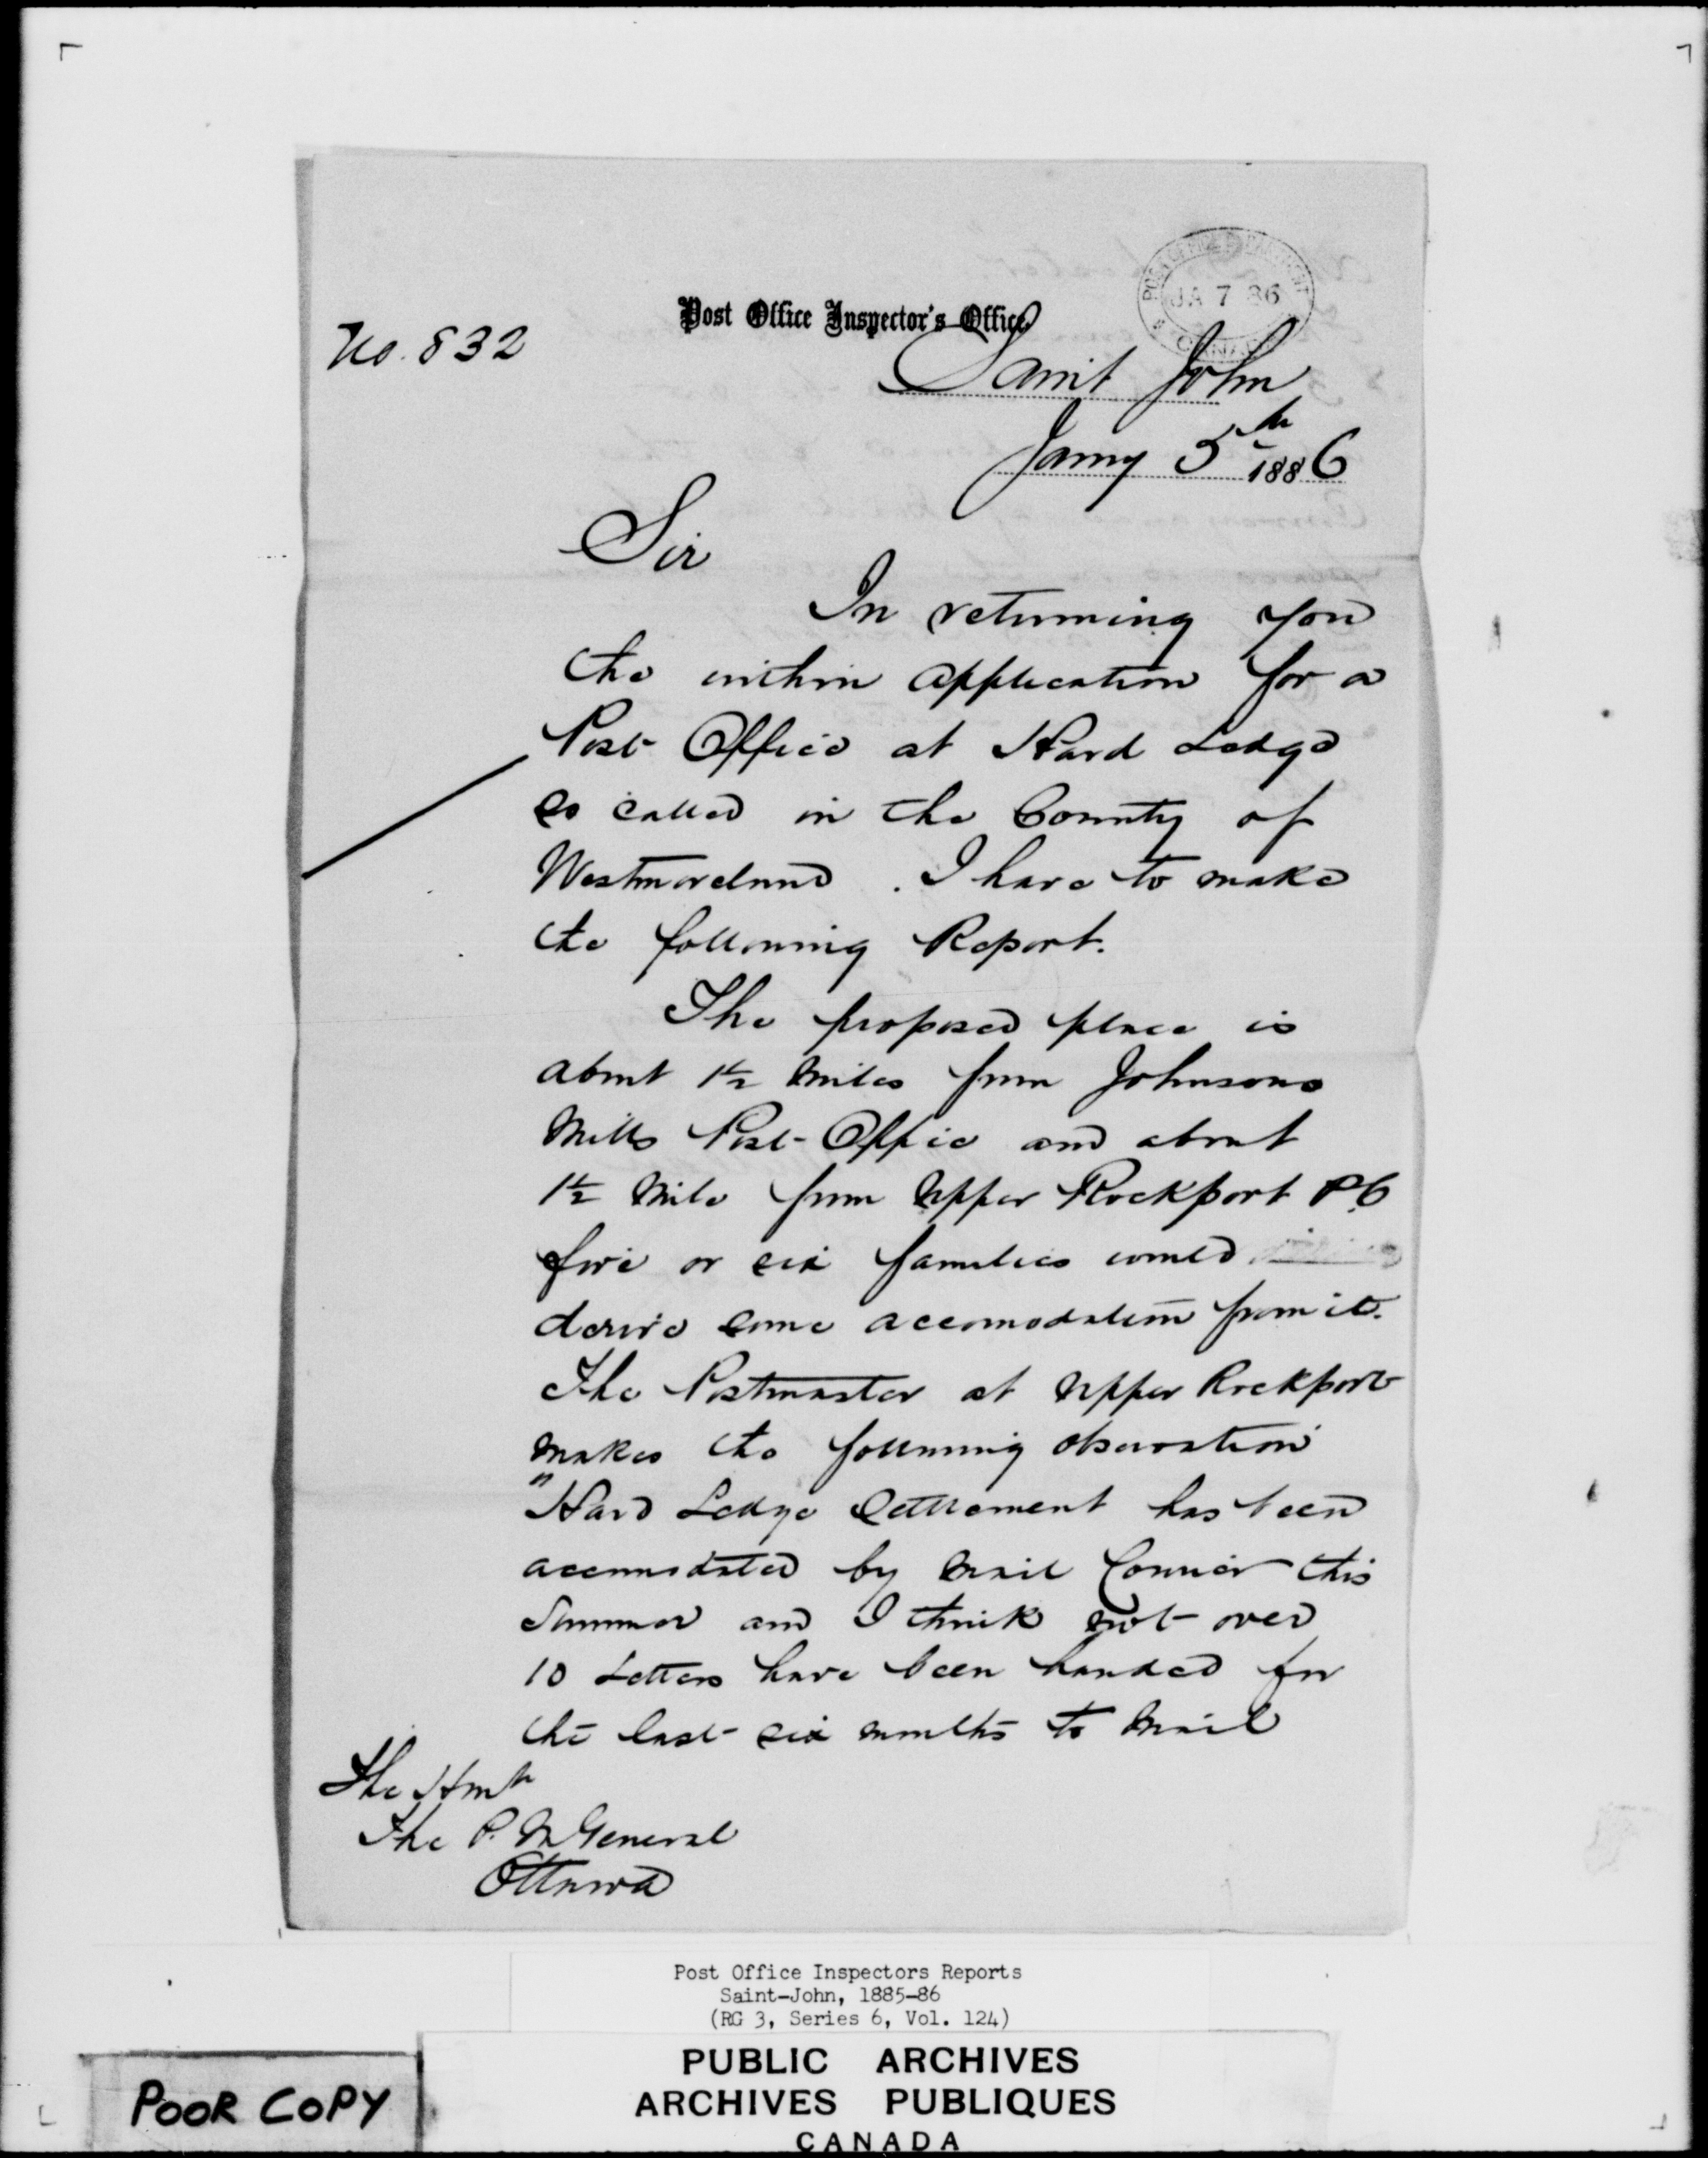 POST OFFICE DEPARTMENT
JA 7 86
CANADA
Post Office Inspector's Office
No. 832
Saint John
Jany 5th 1886
Sir
In returning you
the within application for a
Post Office at Hard Ledge
so called in the County of
Westmoreland . I have to make
the following Report.
The proposed place is
about 1½ miles from Johnsons
Mills Post Office and about
1½ mile from Upper Rockport P.O
five or six families would
derive some accomodation from it.
The Postmaster at Upper Rockport
makes the following observation
"Hard Ledge Settlement has been
accomodated by Mail Courier this
Summer and I think not over
10 Letters have been handed for
the last six months to Mail
The Honble
The P. M General
Ottawa
Post Office Inspectors Reports
Saint-John, 1885-86
(RG 3, Series 6, Vol. 124)
PUBLIC ARCHIVES
ARCHIVES PUBLIQUES
CANADA
POOR COPY